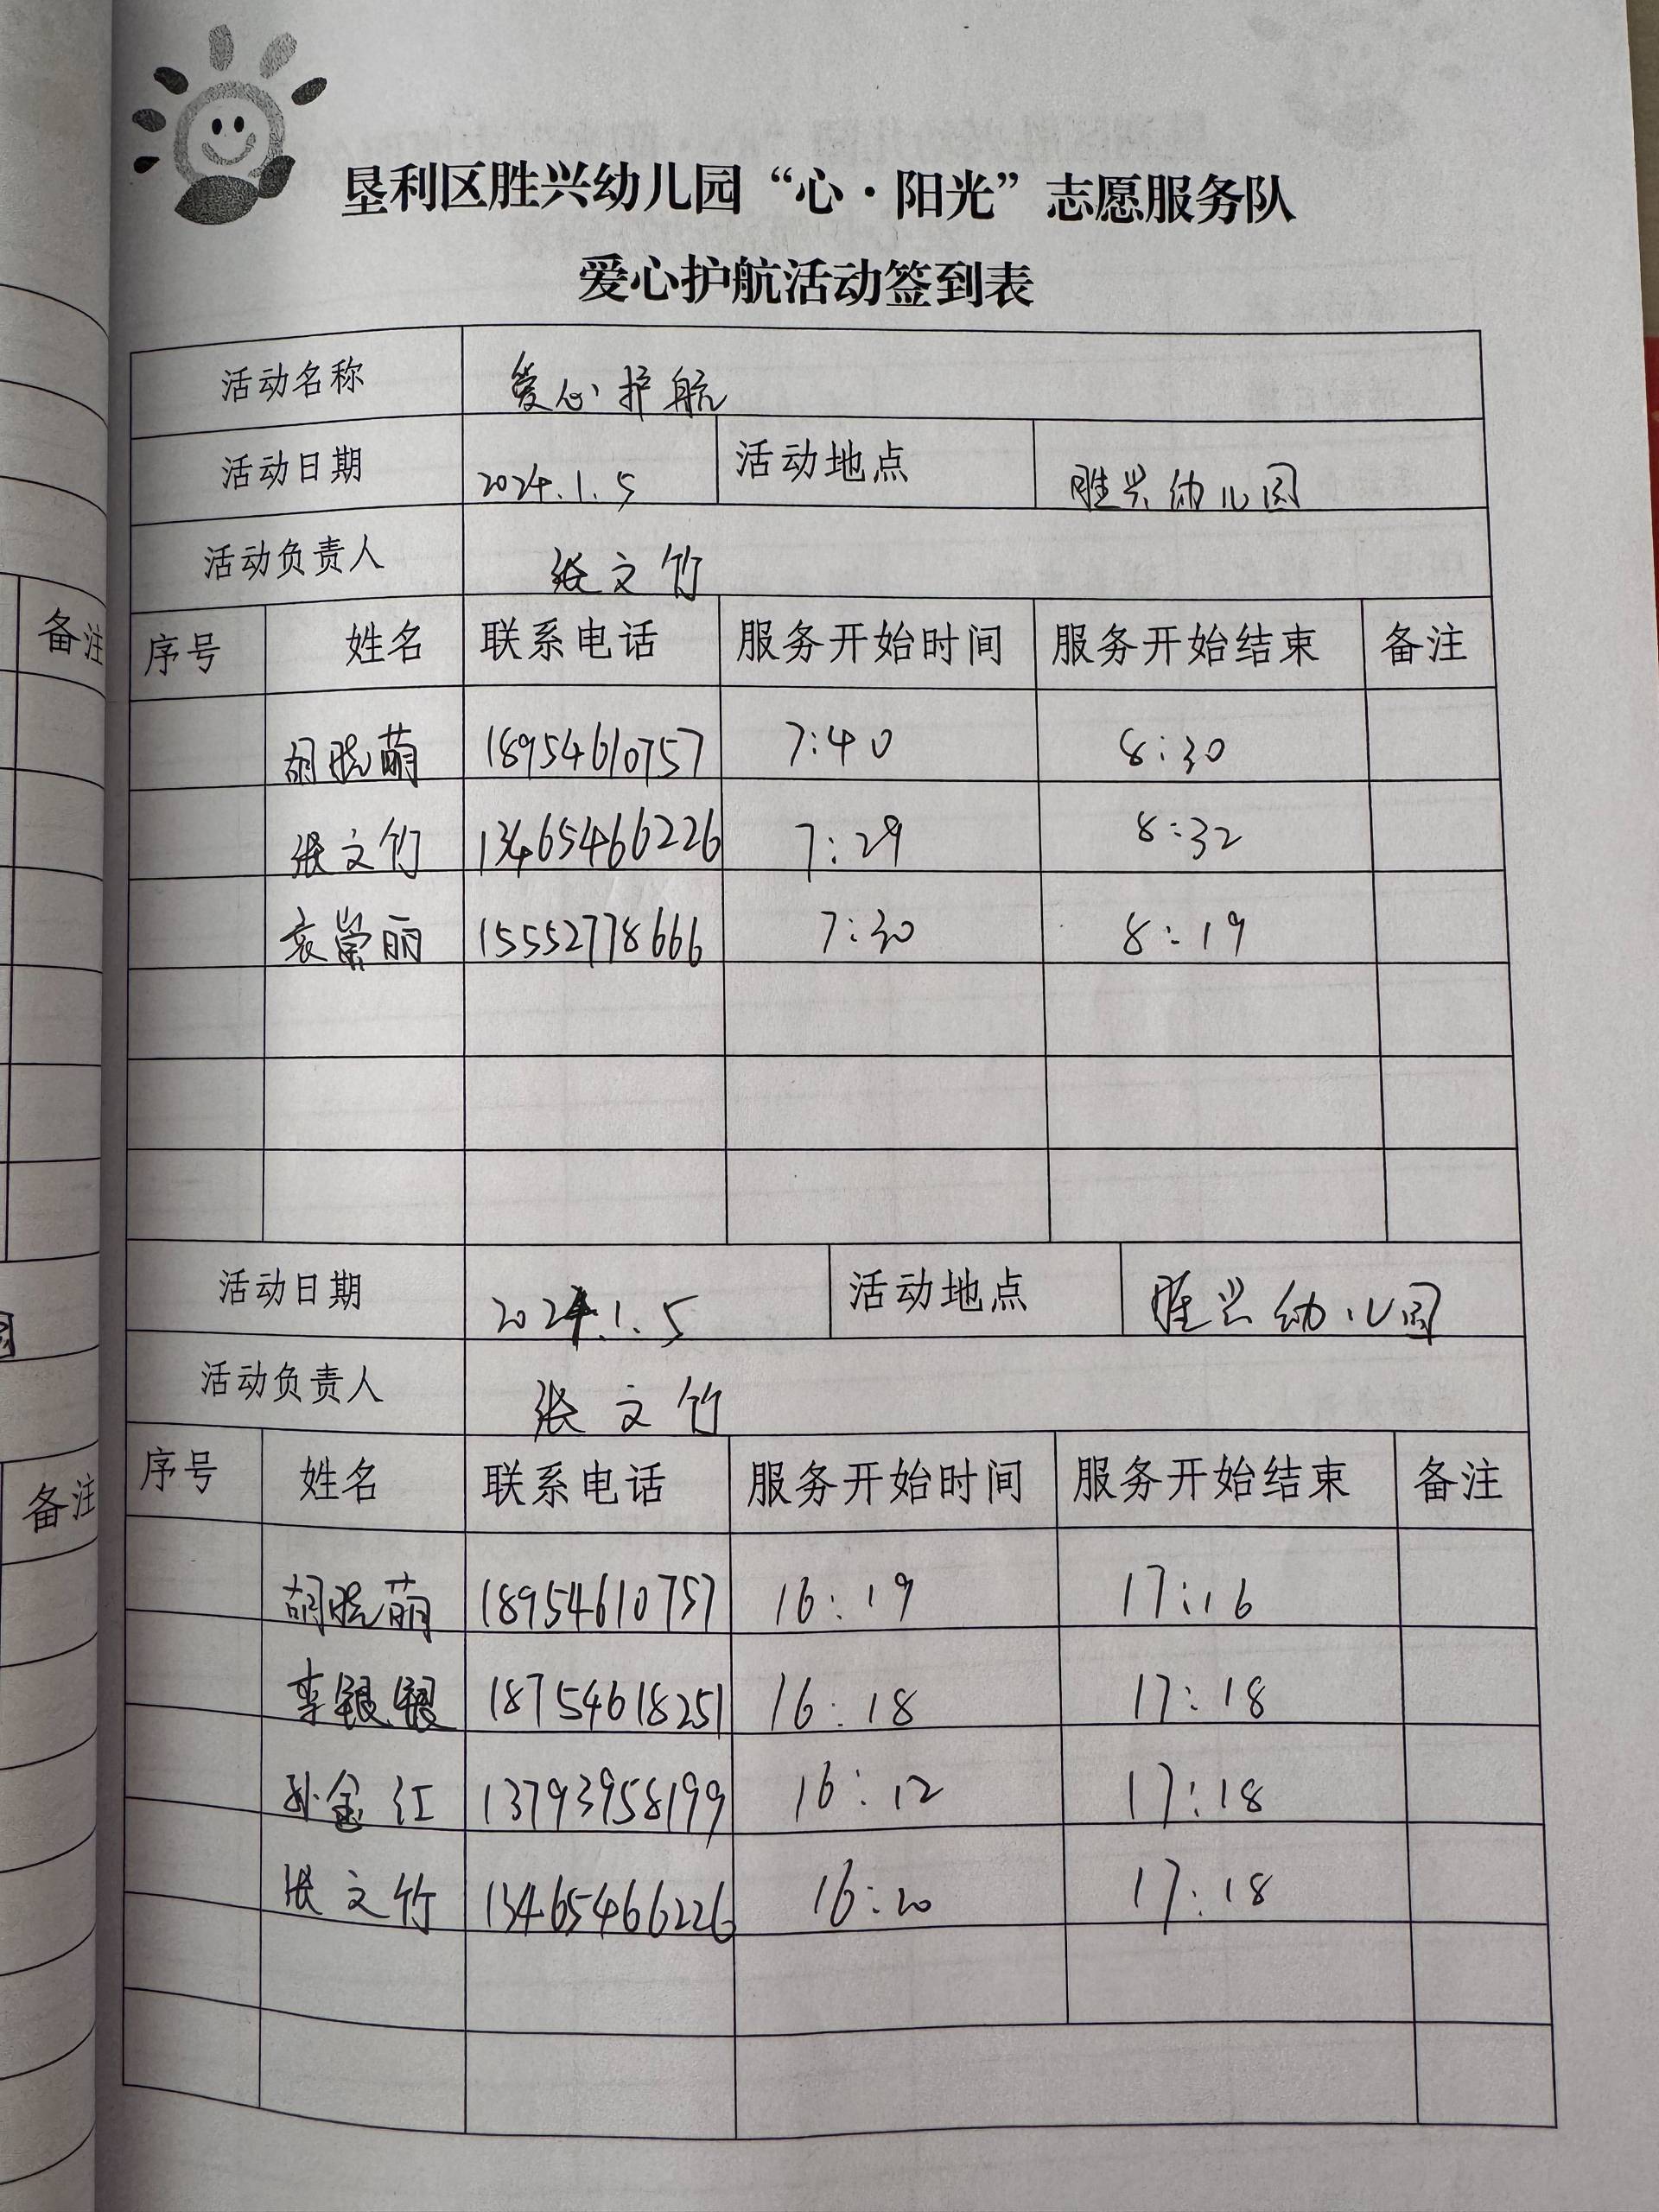 垦利区胜兴幼儿园“心·阳光”志愿服务队
爱心护航活动签到表
活动名称 爱心护航
活动日期 2024.1.5 活动地点 胜兴幼儿园
活动负责人 张文竹
序号 姓名 联系电话 服务开始时间 服务开始结束 备注
胡晓萌 18954610757 7:40 8:30
张文竹 13465466226 7:29 8:32
袁崇丽 15552778666 7:30 8:19
活动日期 2024.1.5 活动地点 胜兴幼儿园
活动负责人 张文竹
序号 姓名 联系电话 服务开始时间 服务开始结束 备注
胡晓萌 18954610757 16:19 17:16
李银银 18754618251 16:18 17:18
孙金江 13793958199 16:12 17:18
张文竹 13465466226 16:20 17:18
备注
园
备注